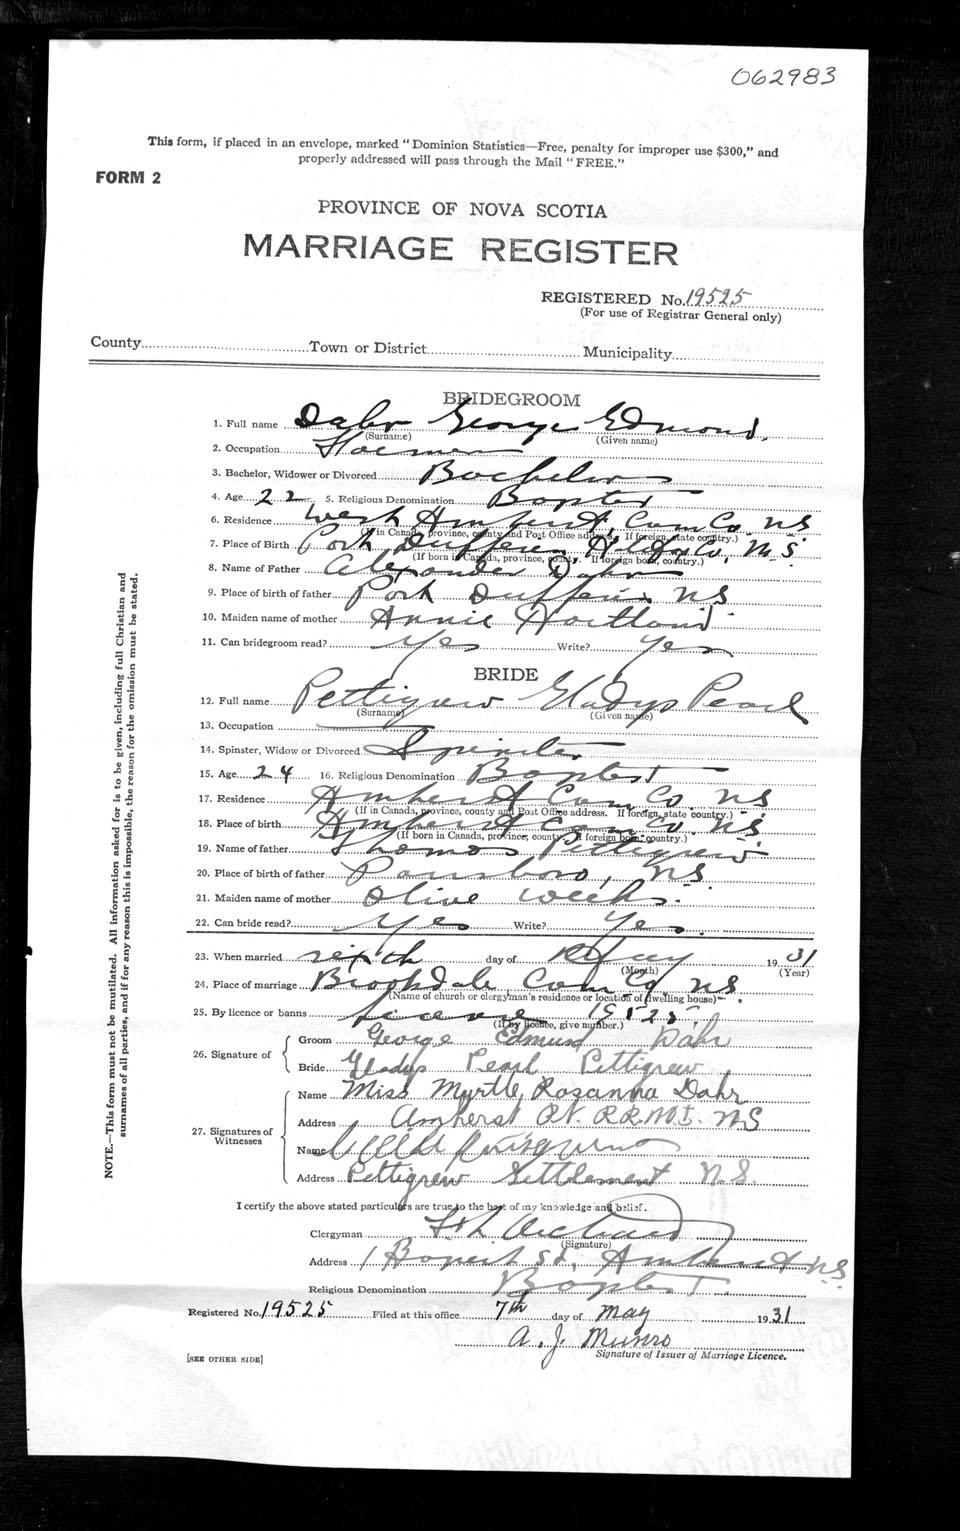 062983
This form, if placed in an envelope, marked "Dominion Statistics—Free, penalty for improper use $300," and
properly addressed will pass through the Mail "FREE."
FORM 2
PROVINCE OF NOVA SCOTIA
MARRIAGE REGISTER
REGISTERED No. 19525
(For use of Registrar General only)
County Town or District Municipality
BRIDEGROOM
1. Full name Dahr George Edmond
(Surname) (Given name)
2. Occupation
3. Bachelor, Widower or Divorced Bachelor
4. Age 22 5. Religious Denomination Baptist
6. Residence West Amherst, Cum Co. NS
(If in Canada, province, county and Post Office address. If foreign, state country.)
7. Place of Birth Port Dufferin, Hfx Co, N.S.
(If born in Canada, province, county. If foreign born, country.)
8. Name of Father Alexander Dahr
9. Place of birth of father Port Dufferin NS
10. Maiden name of mother Annie
11. Can bridegroom read? Yes Write? Yes
BRIDE
12. Full name Pettigrew Gladys Pearl
(Surname) (Given name)
13. Occupation
14. Spinster, Widow or Divorced Spinster
15. Age 24 16. Religious Denomination Baptist
17. Residence Amherst Cum Co. NS
(If in Canada, province, county and Post Office address. If foreign, state country.)
18. Place of birth Amherst Cum Co. NS
(If born in Canada, province, county. If foreign born, country.)
19. Name of father Thomas Pettigrew
20. Place of birth of father Parrsboro, NS.
21. Maiden name of mother Olive Weeks.
22. Can bride read? Yes Write? Yes.
23. When married sixth day of May 1931
(Month) (Year)
24. Place of marriage Brookdale, Cum Co. NS.
(Name of church or clergyman's residence or location of dwelling house)
25. By licence or banns licence 19525
(If by licence, give number.)
26. Signature of
Groom George Edmund Dahr
Bride Gladys Pearl Pettigrew
27. Signatures of Witnesses
Name Miss Myrtle Rosanna Dahr
Address Amherst R.R. No.1. NS
Name
Address Pettigrew Settlement N.S.
I certify the above stated particulars are true to the best of my knowledge and belief.
Clergyman
(Signature)
Address St, Amherst NS
Religious Denomination Baptist
Registered No. 19525 Filed at this office 7th day of May 1931
A. J. Munro
Signature of Issuer of Marriage Licence.
[SEE OTHER SIDE]
NOTE.—This form must not be mutilated. All information asked for is to be given, including full Christian and
surnames of all parties, and if for any reason this is impossible, the reason for the omission must be stated.